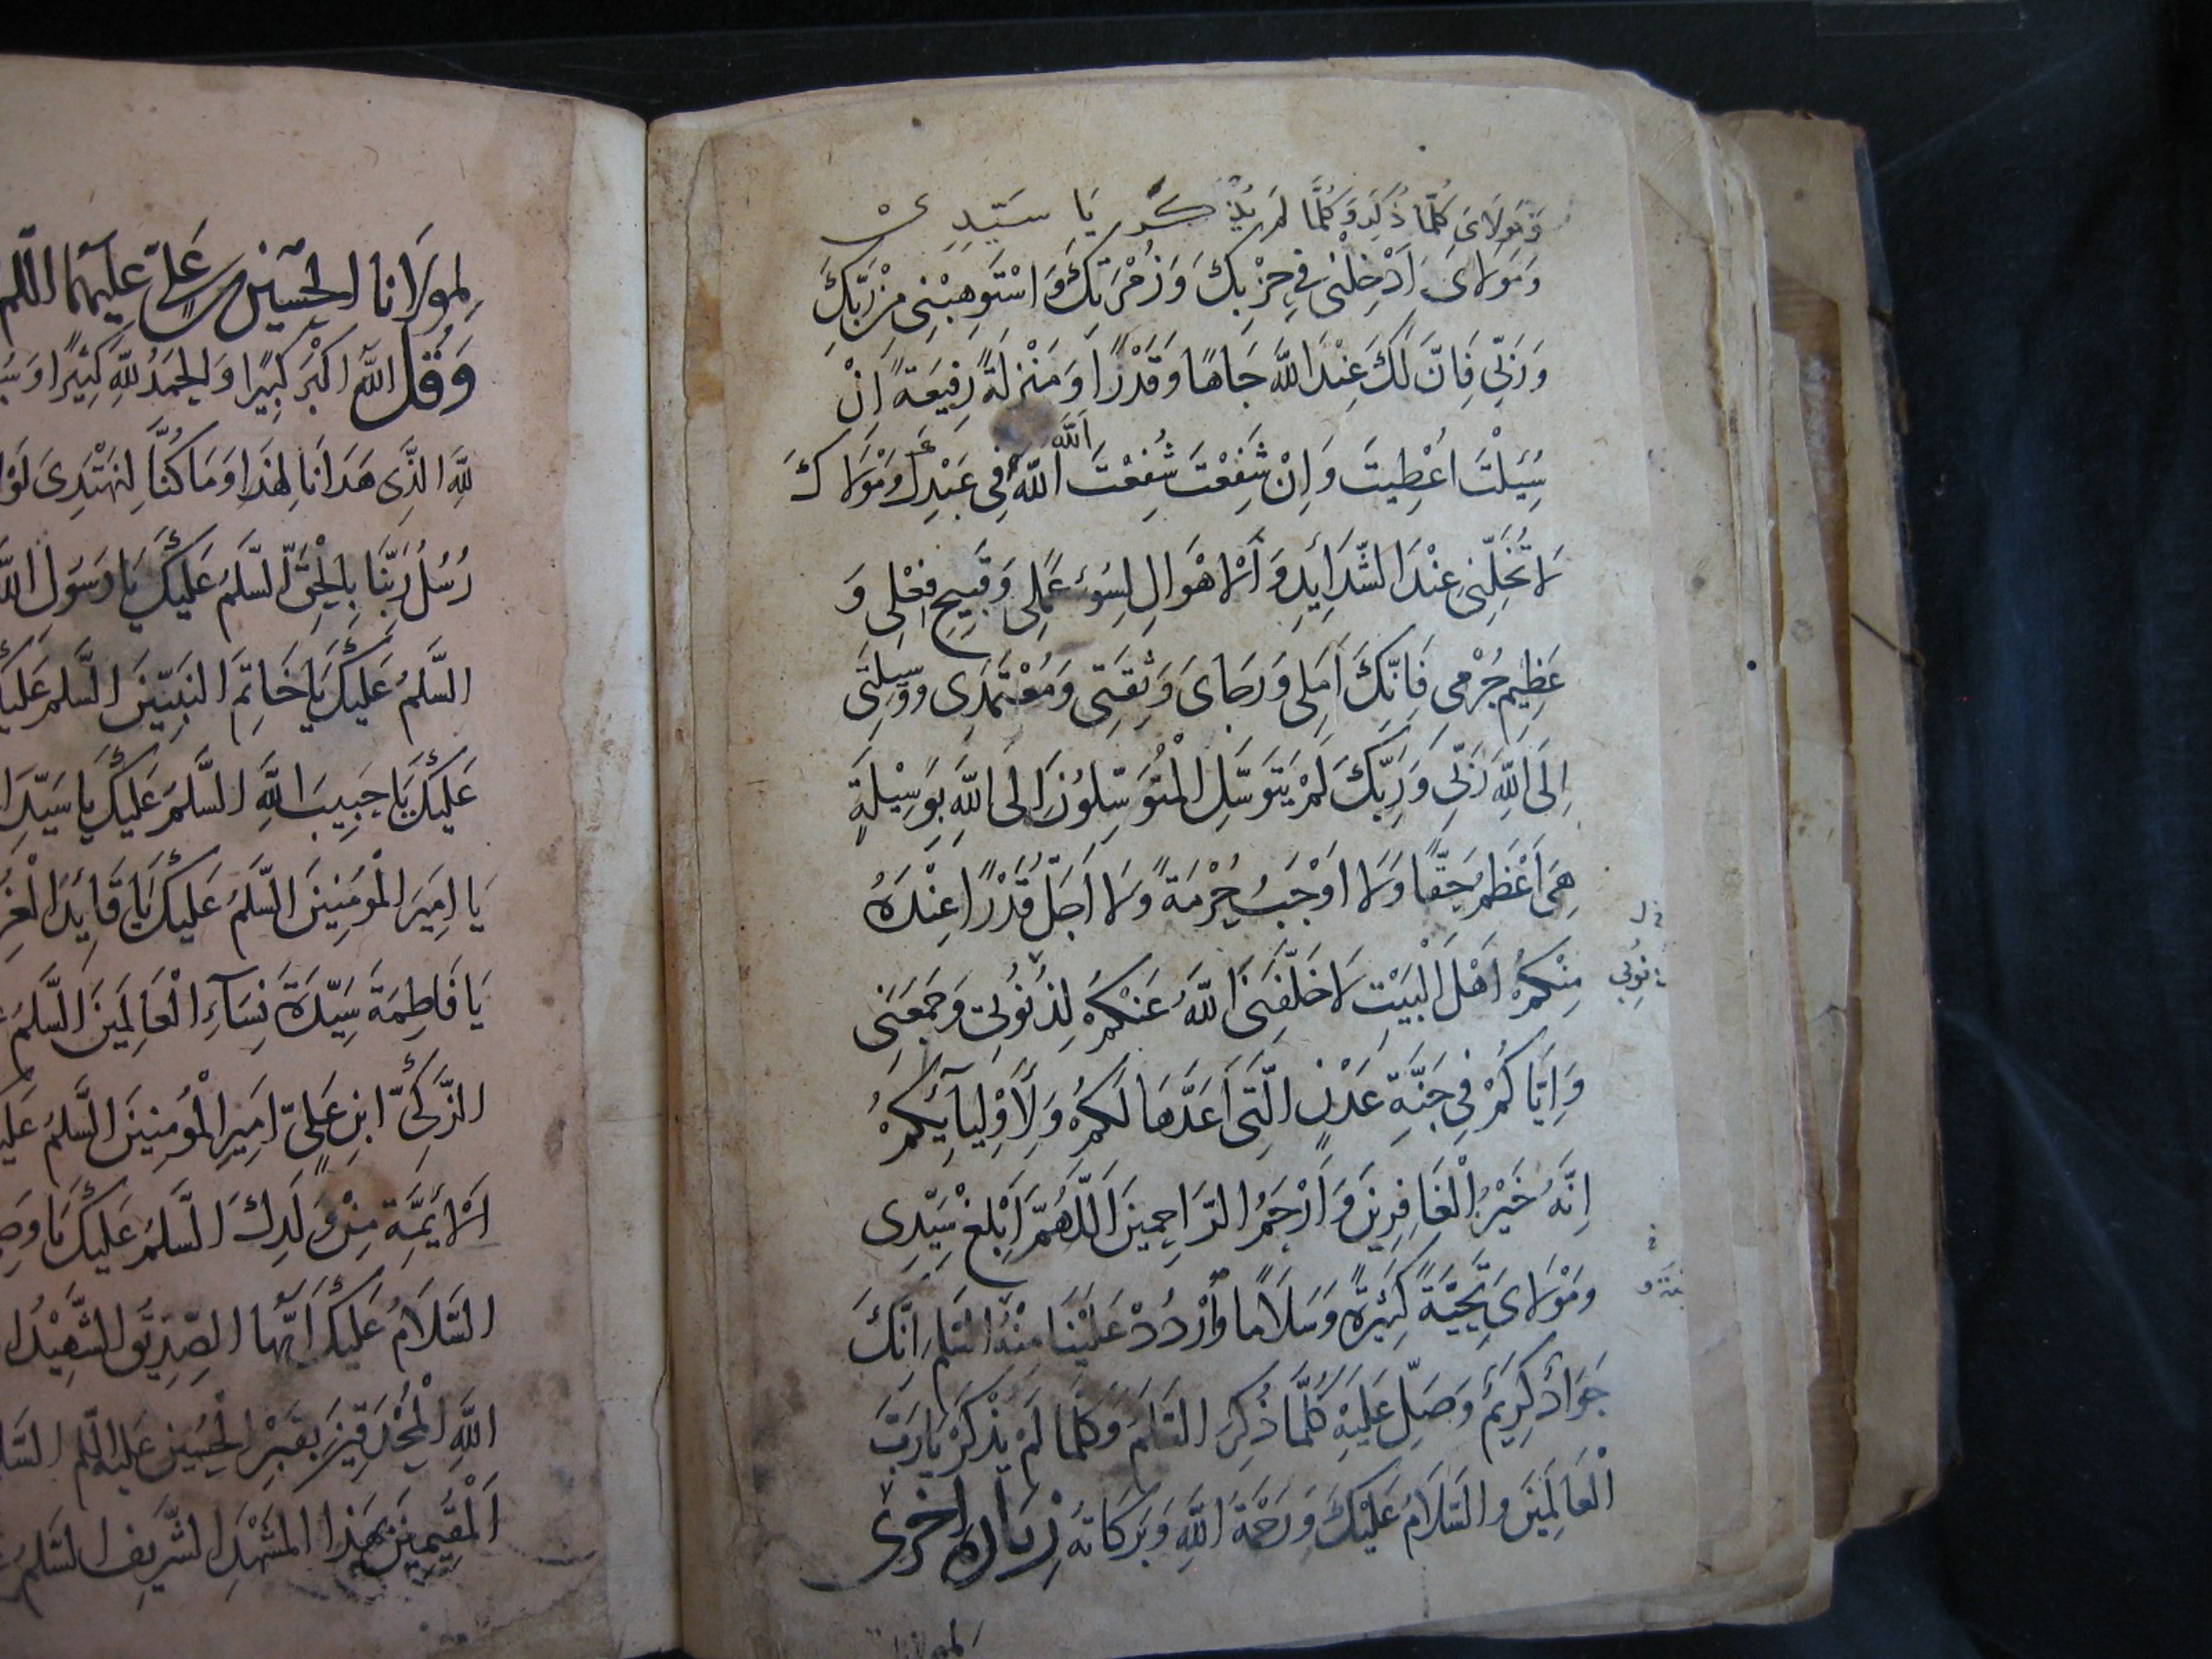 وَمَولَایَ كُلَّمَا ذُكِرَ وَكُلَّمَا لَمْ يُذْكَر يَا سَيِّدِى
وَمَولَاىَ اَدْخِلْنِى فِى حِزْبِكَ وَزُمْرَتِكَ وَاسْتَوهِبْنِى مِنْ رَبِّكَ
وَرَبِّى فَاِنَّ لَكَ عِنْدَ اللَّهِ جَاهًا وَقَدْرًا وَمَنْزِلَةً رَفِيعَةً اِنْ
سُئِلْتَ اُعْطِيتَ وَاِنْ شَفَعْتَ شُفِعْتَ اَللَّهَ اللَّهَ فِى عَبْدِكَ وَمَوْلَاكَ
لَا تُخَلِّنِى عِنْدَ الشَّدَایِدِ وَالْاَهْوَالِ لِسُوءِ عَمَلِى وَقَبِيحِ فِعْلِى وَ
عَظِيمِ جُرْمِى فَاِنَّكَ اَمَلِى وَرَجَاىَ وَثِقَتِى وَمُعْتَمَدِى وَوَسِيلَتِى
اِلَى اللَّهِ رَبِّى وَرَبِّكَ لَمْ يَتَوَسَّلِ الْمُتَوَسِّلُونَ اِلَى اللَّهِ بِوَسِيْلَةٍ
هِىَ اَعْظَمُ حَقًّا وَلَا اَوْجَبُ حُرْمَةً وَلَا اَجَلُّ قَدْرًا عِنْدَهُ
مِنْكُمْ اَهْلَ الْبَيْتِ لَا خَلَّفَنِىَ اللَّهُ عَنْكُمْ لِذُنُوبِى وَجَمَعَنِى
وَاِيَّاكُمْ فِى جَنَّةِ عَدْنٍ الَّتِى اَعَدَّهَا لَكُمْ وَلِاَوْلِيآئِكُمْ
اِنَّهُ خَيْرُ الْغَافِرِينَ وَاَرْحَمُ الرَّاحِمِينَ اَللَّهُمَّ اَبْلِغْ سَيِّدِى
وَمَوْلَاىَ تَحِيَّةً كَثِيرَةً وَسَلَامًا وَارْدُدْ عَلَيْنَا مِنْهُ السَّلَمَ اِنَّكَ
جَوَادٌ كَرِيمٌ وَصَلِّ عَلَيْهِ كُلَّمَا ذُكِرَ السَّلَمُ وَكُلَّمَا لَمْ يُذْكَرْ يَا رَبَّ
الْعَالَمِينَ وَالسَّلَامُ عَلَيْكَ وَرَحْمَةُ اللَّهِ وَبَرَكَاتُهُ زِيَارة اخرى
لمولانا
لِمولَانا الحسين بن عَلىّ عليهما السّلم
وَقُل اللهُ اَكْبَر كَبِيرًا وَالحَمدُ لِلّهِ كَثِيرًا
لِلَّهِ الَّذِى هَدَانَا لِهَذَا وَمَا كُنَّا لِنَهْتَدِىَ
رُسُلُ رَبِّنَا بِالْحَقِّ السَّلَمُ عَلَيكَ يَا رَسُولَ اللَّهِ
السَّلَمُ عَلَيكَ يَا خَاتِمَ النَبِيّينَ السَّلَمُ عَلَيكَ
عَلَيكَ يَا حَبِيبَ اللَّهِ السَّلَمُ عَلَيكَ يَا سَيّدَ
يَا اَمِيرَ الْمُؤمِنِينَ السَّلَمُ عَلَيكَ يَا قَايِدَ الْغُرِّ
يَا فَاطِمَةَ سَيِّدَةَ نِسَآءِ الْعَالَمِينَ السَّلَمُ
الزَّكِىِّ ابنِ عَلِىّ اَمِيرِ الْمُؤمِنِينَ السَّلَمُ
الْاَئِمَّةِ مِنْ وَلَدِكَ السَّلَمُ عَلَيكَ يَا
السَّلَامُ عَلَيكَ اَيُّهَا الصِّدِيقُ الشَّهِيدُ
اللَّهِ الْمُحْدِقِينَ بِقَبْرِ الْحُسَينِ عَلَيهِ السَّلَم
اَلْمُقِيمِينَ بِهَذَا الْمَشْهَدِ الشَّرِيفِ السَّلَمُ